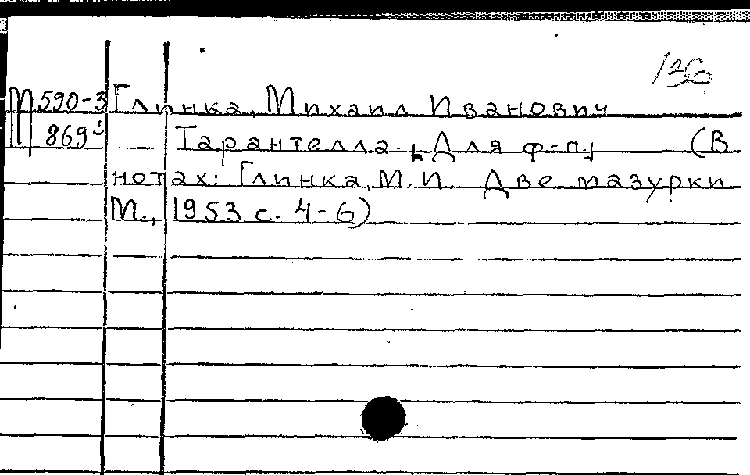 136
М 590-3 Глинка, Михаил Иванович
869 Тарантелла [Для ф-п.] (В
нотах: Глинка, М.И. Две мазурки
М., 1953 с. 4-6)